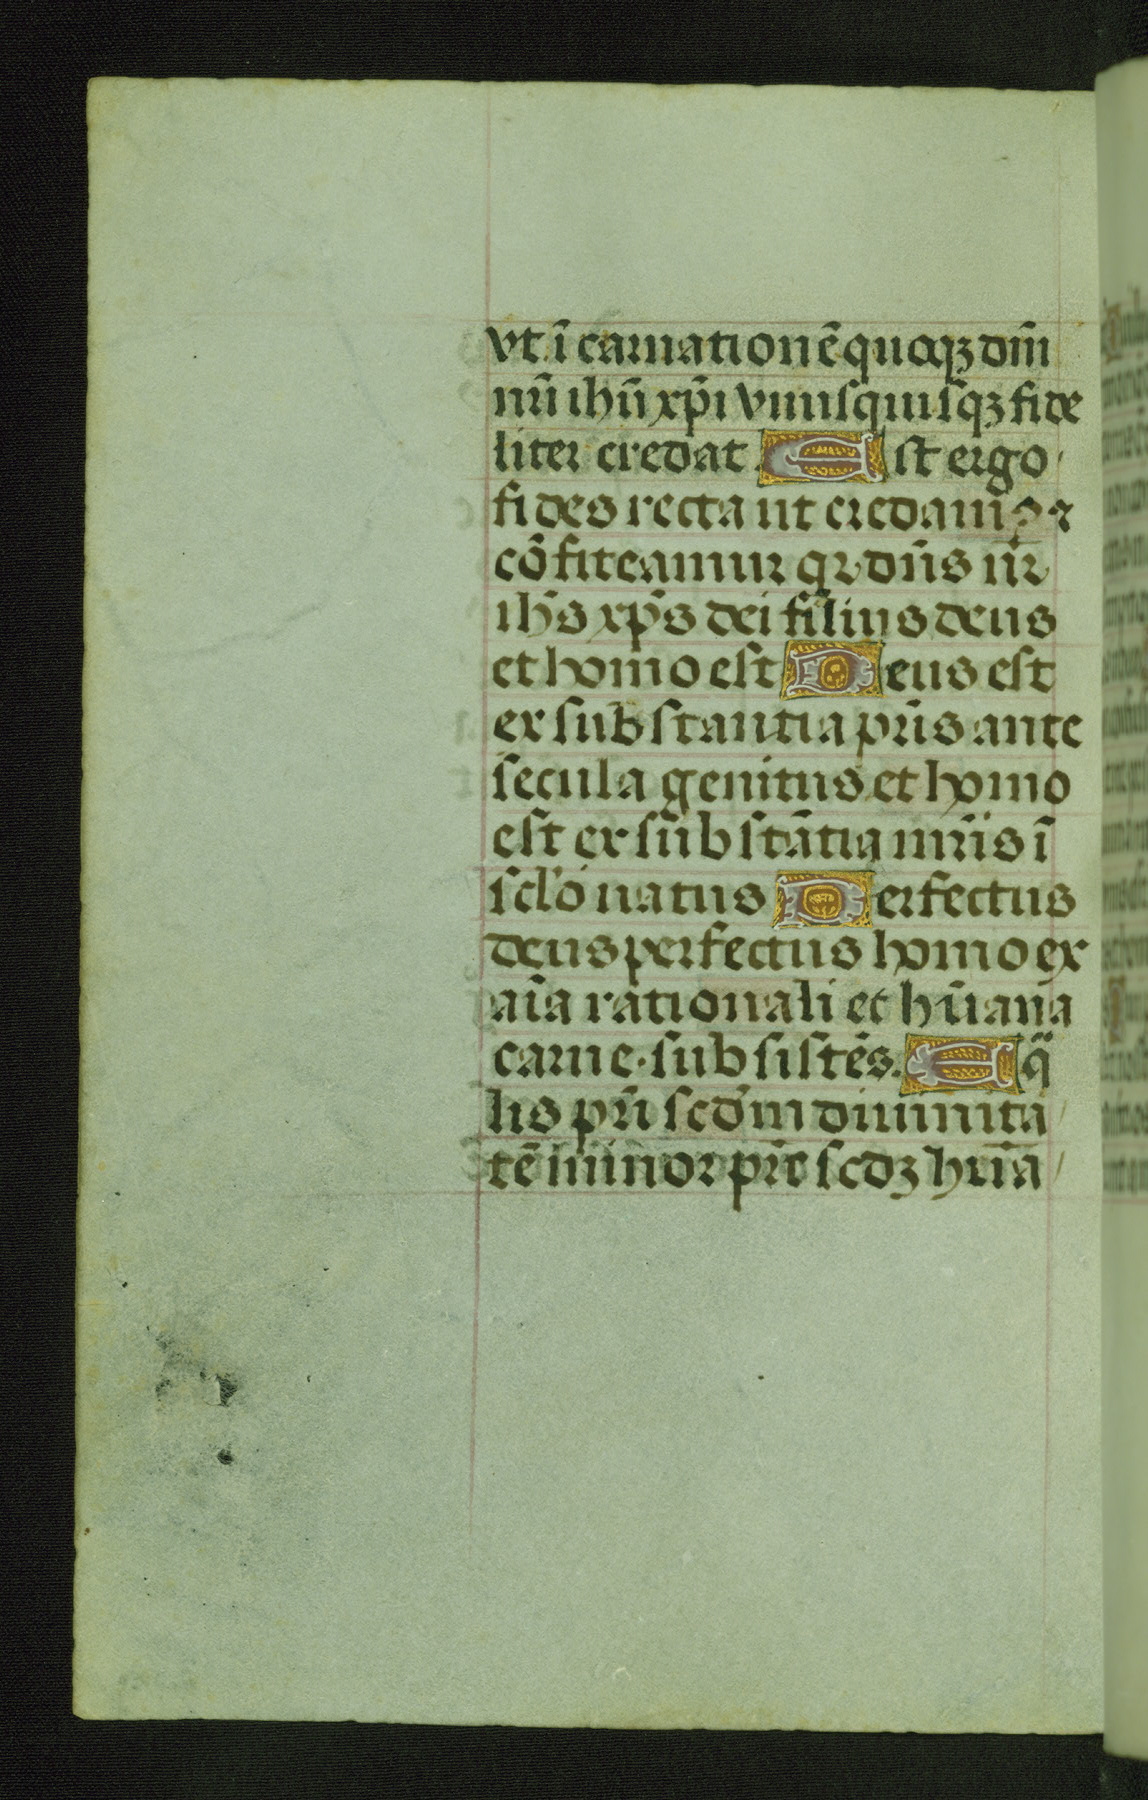 vt ī carnationē quoqꝫ dm̄
nr̄i ihū xp̄i vnusquisqꝫ fide
liter credat. Est ergo
fides recta ut credam⁹ ⁊
cōfiteamur qꝛ dn̄s nr̄
ihs̄ xp̄s dei filius deus
et homo est Deus est
ex substantia pr̄is ante
secula genitus et homo
est ex substātia mr̄is ī
sclo natus Perfectus
deus perfectus homo ex
aīa rationali et hūana
carne·subsistēs. Eq̄
lis pr̄i scdm diuinita
tē minor pr̄e scdꝫ hūa